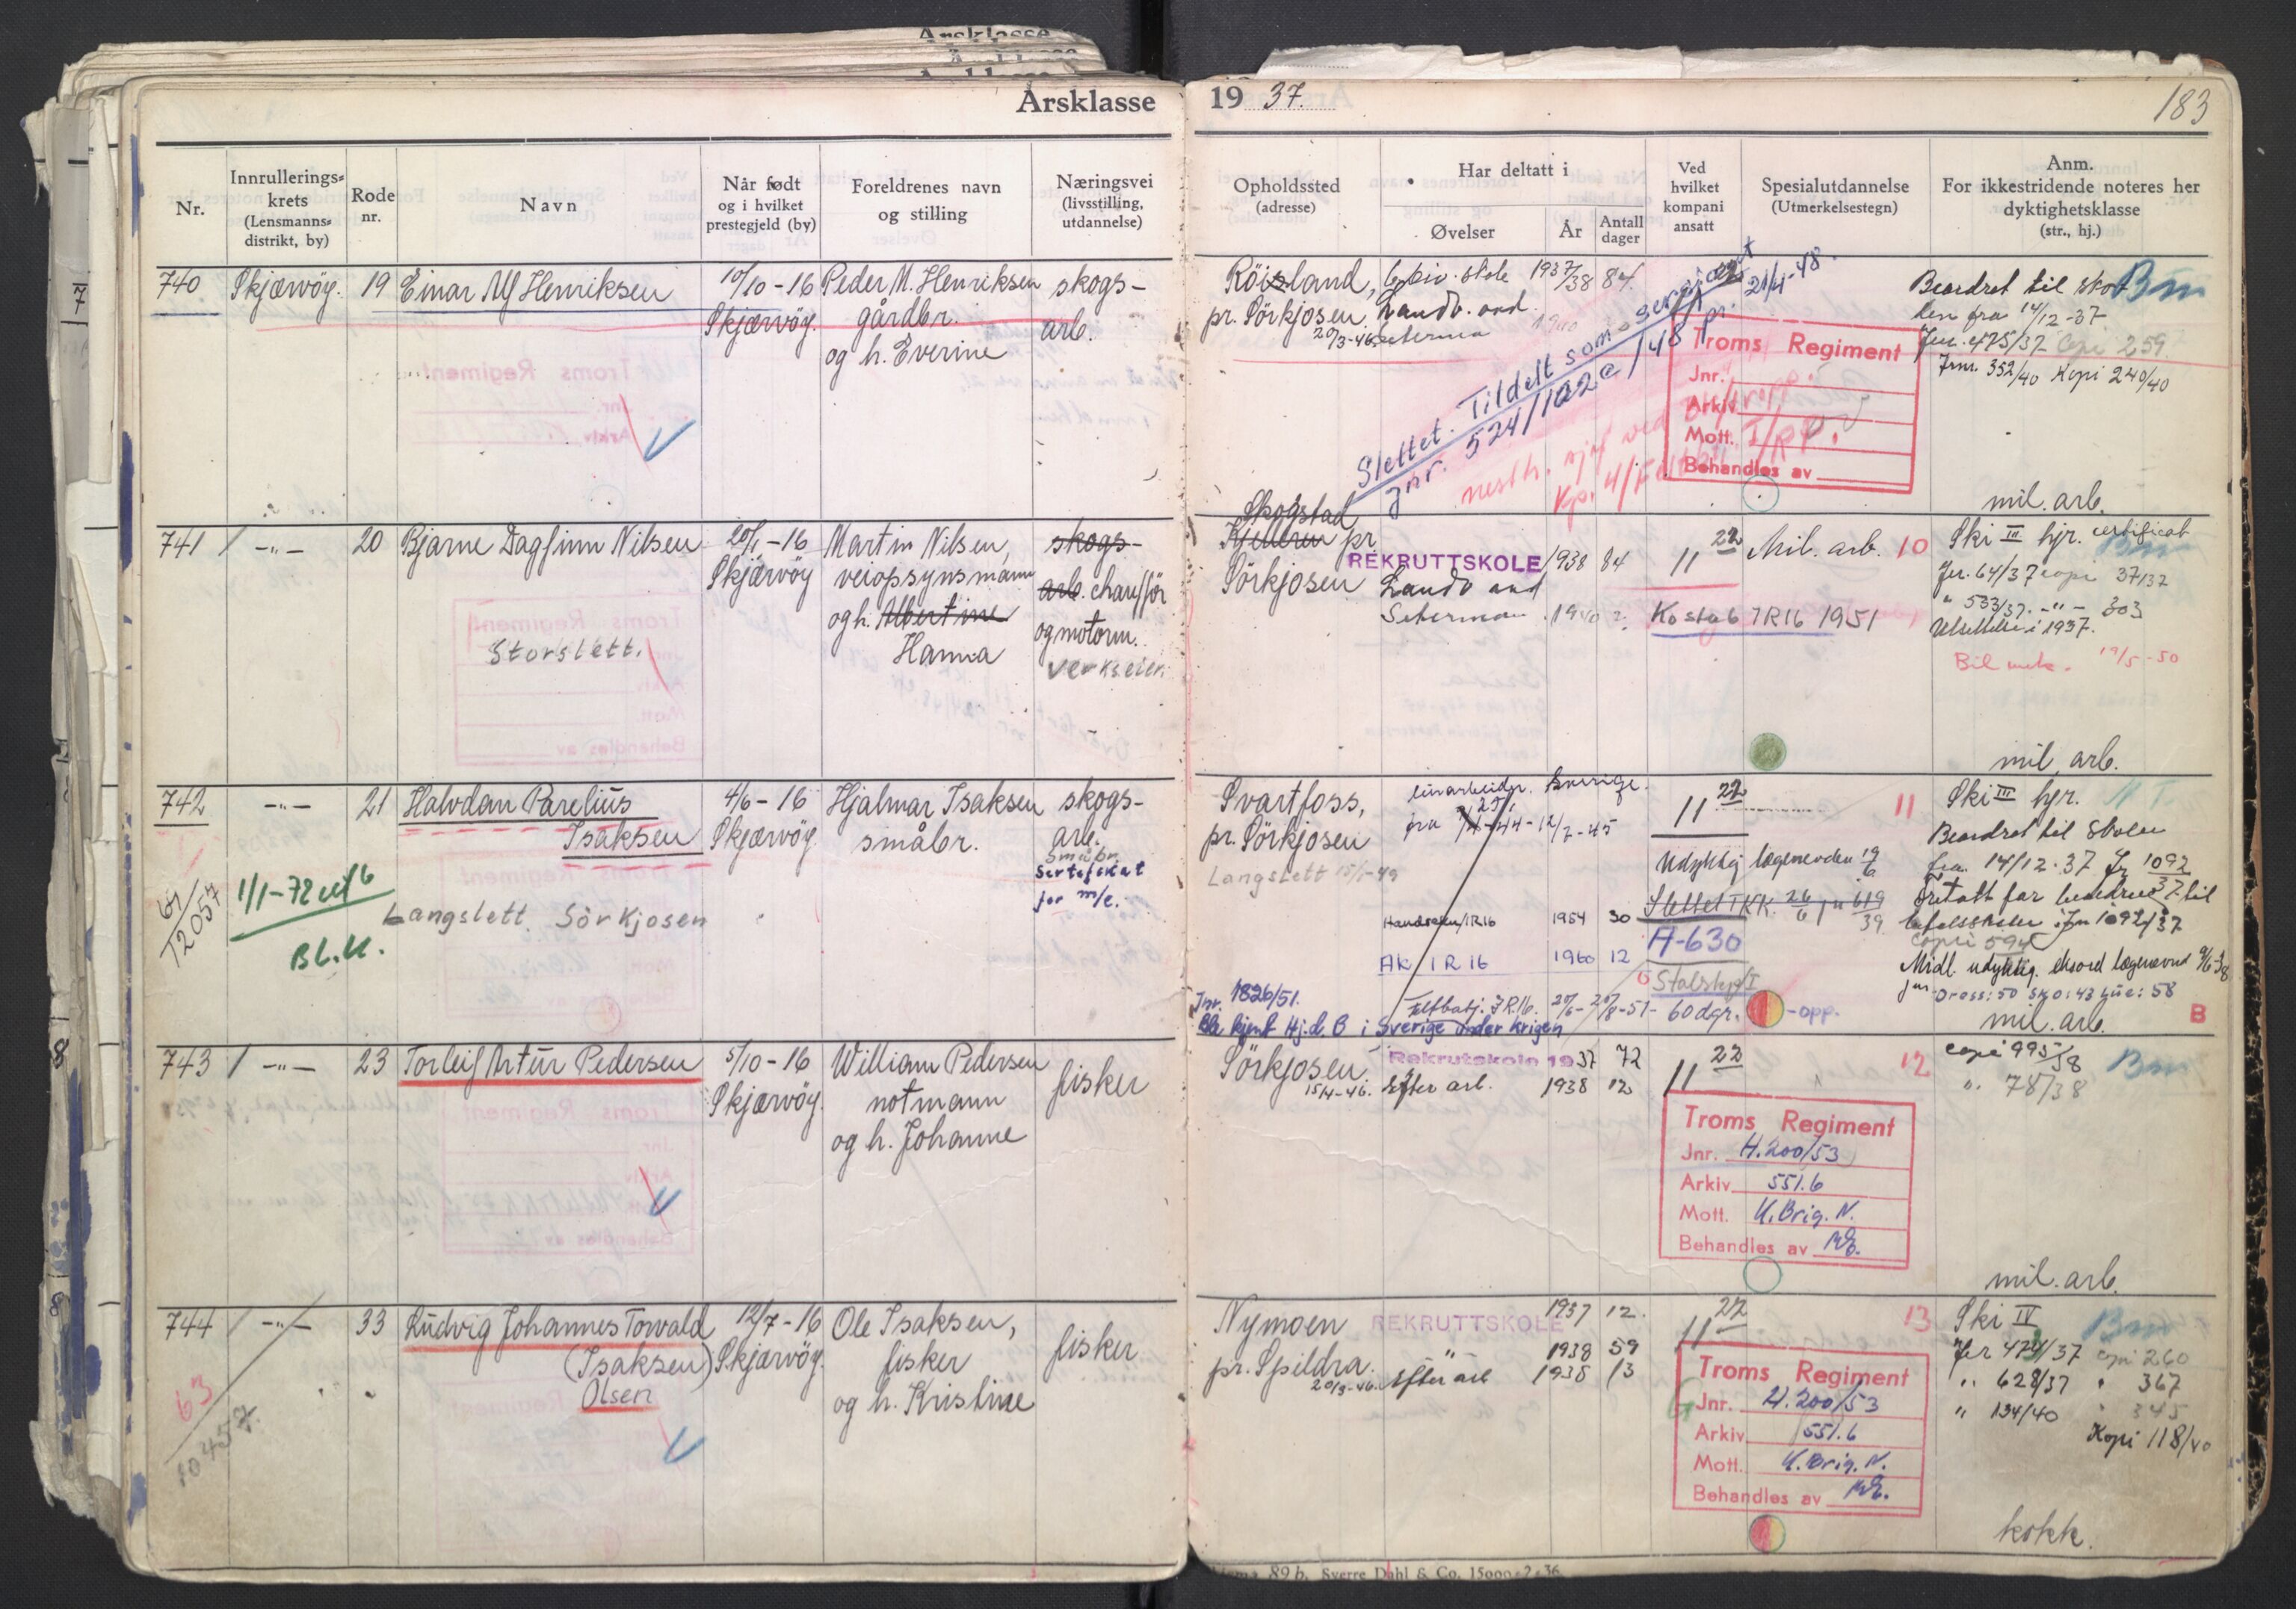 Årsklasse 19 37.
183
Nr.
Innrullerings-
krets
(Lensmanns-
distrikt, by)
Rode
nr.
Navn
Når født
og i hvilket
prestegjeld (by)
Foreldrenes navn
og stilling
Næringsvei
(livsstilling,
utdannelse)
Opholdssted
(adresse)
Har deltatt i
Øvelser
År
Antall
dager
Ved
hvilket
kompani
ansatt
Spesialutdannelse
(Utmerkelsestegn)
Anm.
For ikkestridende noteres her
dyktighetsklasse
(str., hj.)
740 Skjærvöy. 19 Einar Alf Henriksen
10/10-16
Skjærvöy.
Peder M. Henriksen
gårdbr.
og h. Everine
skogs-
arb.
Röisland,
pr. Sörkjosen
20/3-46
skole 1937/38 84
Landv. and.
Seterma 1940
Slettet. Tildelt som sergeant
Jnr. 524/102a/48
21/4-48.
Troms Regiment
Jnr.
Arkiv
Mott.
Behandles av
Beordret til sko
len fra 14/12-37
Jnr. 475/37 Copi 259
Jnr. 352/40 Kopi 240/40
Bm
mil. arb.
741 / -"- 20 Bjarne Dagfinn Nilsen
Storslett.
20/1-16
Skjærvöy
Martin Nilsen,
veiopsynsmann
og h. Albertine
Hanna
skogs-
arb. chaufför
og motorm.
verkseier.
Skogstad
pr
Sörkjosen
REKRUTTSKOLE 1938 84
Landv and
Seterman 1940
11 22
Mil. arb. 10
Ko stab IR16 1951
Ski III hjr. certificat
Jnr. 64/37 copi 37/37
" 533/37. -"- 303
Utsettelse i 1937.
Bil mek. 19/5-50
mil. arb.
742 -"- 21 Halvdan Parelius
Isaksen
1/1-72
BL.K.
Langslett Sörkjosen
12057
4/6-16
Skjærvöy
Hjalmar Isaksen
småbr.
skogs-
arb.
Småbr.
Sertefikat
for m/c.
Svartfoss,
pr. Sörkjosen
Langslett 15/1-49
Sverige.
fra 12/7-45
IR16 1954 30
AK IR 16 1960 12
Jnr. 1826/51.
kjent Hj.d. B i Sverige under krigen
Feltbatj. IR16. 60 dgr.
11 22
11
Udyktig lægenevden
A-630
-opp.
Ski III hjr.
Beordret til Skolen
fra 14/12.37 Jr 1092/37
Jnr 1092/37
Copi 594
Midl. udyktig.
Dress: 50 Sko: 43 Lue: 58
mil. arb. B
743 / -"- 23 Torleif Artur Pedersen
5/10-16
Skjærvöy.
William Pedersen
notmann
og h. Johanne
fisker
Sörkjosen
15/4-46.
Rekrutskole 1937 72
Efter arb. 1938 12
11 22
12
Troms Regiment
Jnr. H.200/53
Arkiv 551.6
Mott. K.Brig.N.
Behandles av
copi 995/38
" 78/38
Bm
mil. arb.
744 / -"- 33 Ludvig Johannes Torvald
(Isaksen)
Olsen
63
10457
12/7-16
Skjærvöy.
Ole Isaksen,
fisker
og h. Kristine
fisker
Nymoen
pr. Spildra.
20/3-46.
REKRUTTSKOLE 1937 12.
" 1938 59
Efter arb 1938 13
11 22
13
Troms Regiment
Jnr. H.200/53
Arkiv 551.6
Mott. K.Brig.N.
Behandles av
Ski IV
Bm
Jnr 474/37 copi 260
" 628/37 " 367
" 134/40 " 345
Kopi 118/40
kokk.
89 b. Sverre Dahl & Co. 15000-2-36